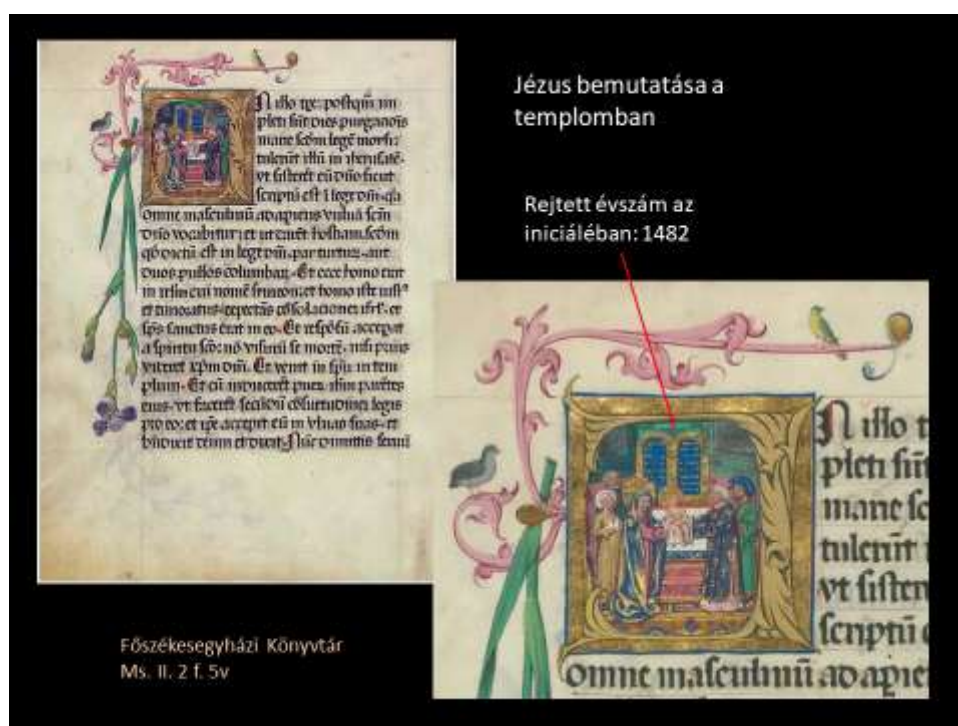 N illo tpe: postqm im
pleti sūt dies purgacōis
marie scdm legē
tulerūt illū in
vt sisterēt eū dño sicut
scriptū est ī lege dñi
omne masculinū adapiens vulvā scm
dño vocabitur: et ut darēt hostiam scdm
qd dictū est in lege dñi par turturū aut
duos pullos columbarū. Et ecce homo erat
in cui nomē et homo iste iust
et timoratus et
sps sanctus erat in eo. Et respōsū accepat
a spiritu scō: nō visurū se mortē nisi prius
videret xpm dñi. Et venit in spū in tem
plum. Et cū inducerēt puerū parētes
eius. vt facerēt legis
pro eo: et ipe accepit eū in vlnas suas. et
bñdixit deum et dixit. Nūc dimittis
Jézus bemutatása a
templomban
Rejtett évszám az
iniciáléban: 1482
N illo t
pleti sūt
marie sc
tulerūt
vt sister
scriptū
omne masculinū adapie
Főszékesegyházi Könyvtár
Ms. II. 2 f. 5v